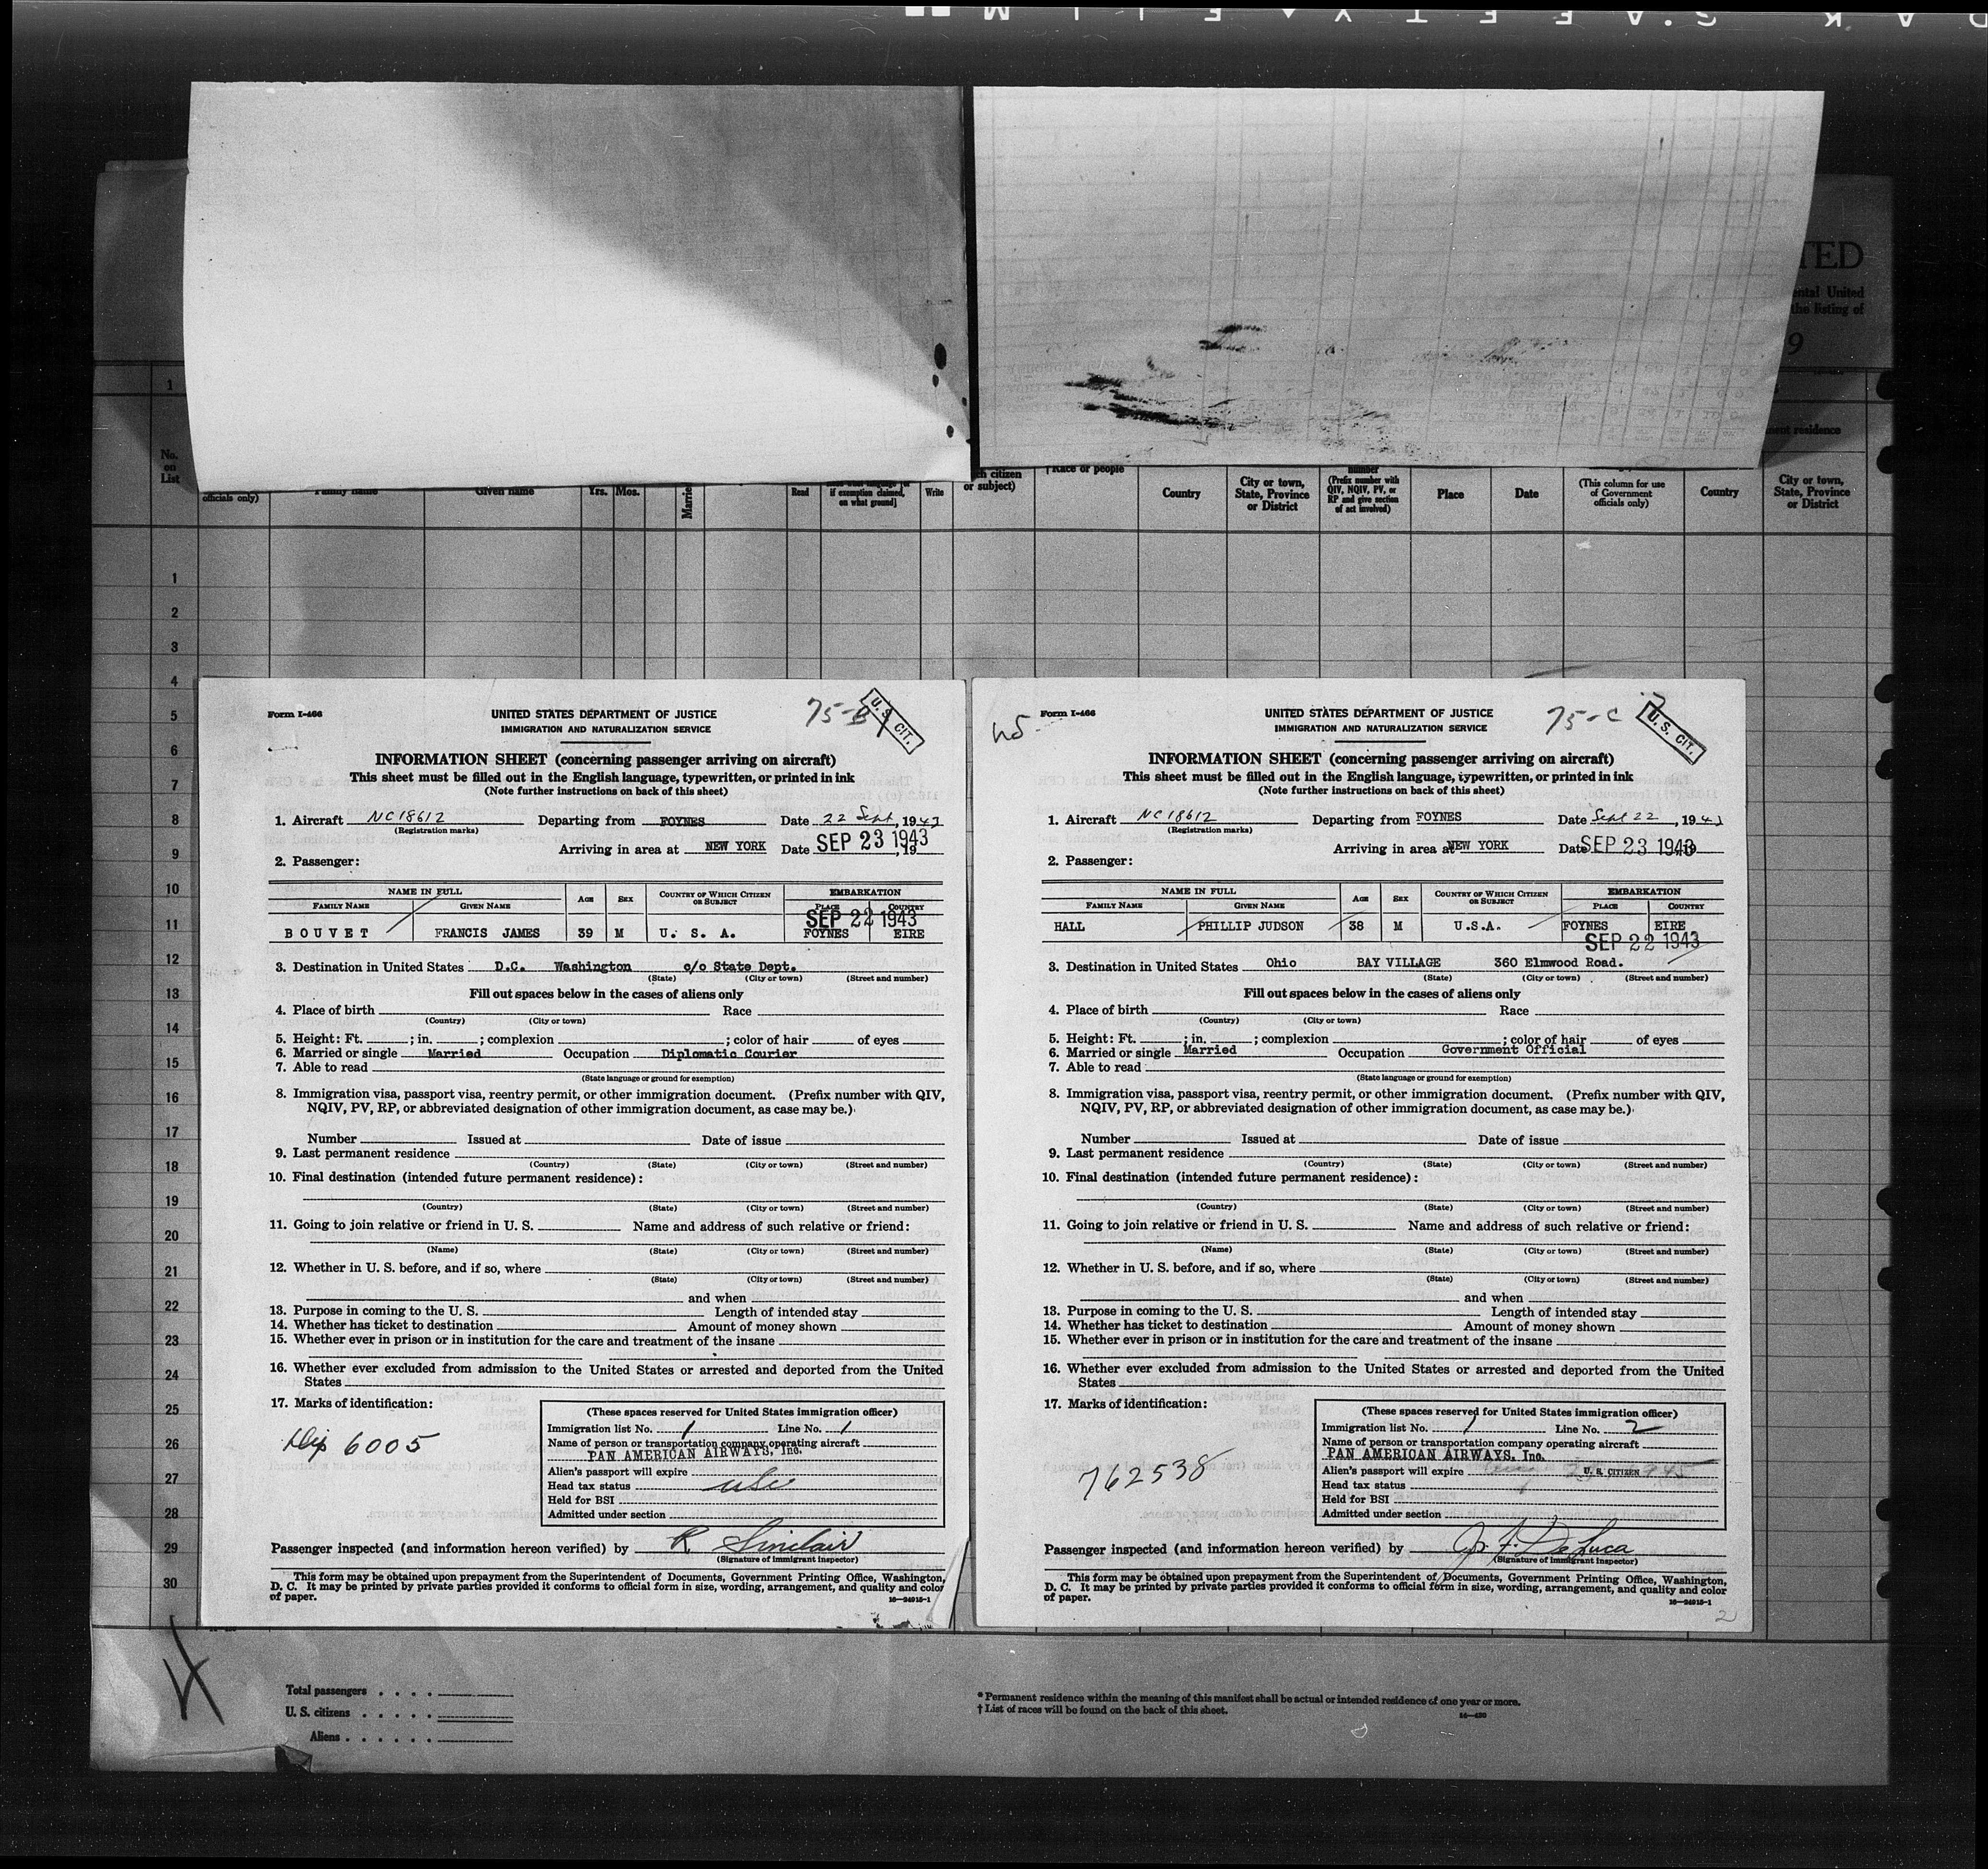 TED
ental United
the listing of
9
1
No.
on
List
officials only)
Family name
Given name
Yrs.
Mos.
Married
Read
if exemption claimed,
on what ground]
Write
citizen
or subject)
† Race or people
Country
City or town,
State, Province
or District
number
(Prefix number with
QIV, NQIV, PV, or
RP and give section
of act involved)
Place
Date
(This column for use
of Government
officials only)
Country
residence
City or town,
State, Province
or District
1
2
3
4
5
6
7
8
9
10
11
12
13
14
15
16
17
18
19
20
21
22
23
24
25
26
27
28
29
30
Form I-466
75-B
U.S. CIT.
UNITED STATES DEPARTMENT OF JUSTICE
IMMIGRATION AND NATURALIZATION SERVICE
INFORMATION SHEET (concerning passenger arriving on aircraft)
This sheet must be filled out in the English language, typewritten, or printed in ink
(Note further instructions on back of this sheet)
1. Aircraft NC18612 Departing from FOYNES Date 22 Sept, 1943
(Registration marks)
Arriving in area at NEW YORK Date SEP 23 1943, 19
2. Passenger:
NAME IN FULL
FAMILY NAME
GIVEN NAME
AGE
SEX
COUNTRY OF WHICH CITIZEN
OR SUBJECT
EMBARKATION
PLACE
COUNTRY
SEP 22 1943
BOUVET FRANCIS JAMES 39 M U. S. A. FOYNES EIRE
3. Destination in United States D.C. Washington c/o State Dept.
(State) (City or town) (Street and number)
Fill out spaces below in the cases of aliens only
4. Place of birth Race
(Country) (City or town)
5. Height: Ft. ; in. ; complexion ; color of hair of eyes
6. Married or single Married Occupation Diplomatic Courier
7. Able to read
(State language or ground for exemption)
8. Immigration visa, passport visa, reentry permit, or other immigration document. (Prefix number with QIV,
NQIV, PV, RP, or abbreviated designation of other immigration document, as case may be.)
Number Issued at Date of issue
9. Last permanent residence
(Country) (State) (City or town) (Street and number)
10. Final destination (intended future permanent residence):
(Country) (State) (City or town) (Street and number)
11. Going to join relative or friend in U. S. Name and address of such relative or friend:
(Name) (State) (City or town) (Street and number)
12. Whether in U. S. before, and if so, where
(State) (City or town) (Street and number)
and when
13. Purpose in coming to the U. S. Length of intended stay
14. Whether has ticket to destination Amount of money shown
15. Whether ever in prison or in institution for the care and treatment of the insane
16. Whether ever excluded from admission to the United States or arrested and deported from the United
States
17. Marks of identification:
Dip 6005
(These spaces reserved for United States immigration officer)
Immigration list No. 1 Line No. 1
Name of person or transportation company operating aircraft
PAN AMERICAN AIRWAYS, Inc.
Alien's passport will expire
Head tax status usc
Held for BSI
Admitted under section
Passenger inspected (and information hereon verified) by R Sinclair
(Signature of immigrant inspector)
This form may be obtained upon prepayment from the Superintendent of Documents, Government Printing Office, Washington,
D. C. It may be printed by private parties provided it conforms to official form in size, wording, arrangement, and quality and color
of paper.
16—24915-1
Form I-466
75-C
U.S. CIT.
UNITED STATES DEPARTMENT OF JUSTICE
IMMIGRATION AND NATURALIZATION SERVICE
INFORMATION SHEET (concerning passenger arriving on aircraft)
This sheet must be filled out in the English language, typewritten, or printed in ink
(Note further instructions on back of this sheet)
1. Aircraft NC18612 Departing from FOYNES Date Sept 22, 1943
(Registration marks)
Arriving in area at NEW YORK Date SEP 23 1943
2. Passenger:
NAME IN FULL
FAMILY NAME
GIVEN NAME
AGE
SEX
COUNTRY OF WHICH CITIZEN
OR SUBJECT
EMBARKATION
PLACE
COUNTRY
HALL PHILLIP JUDSON 38 M U.S.A. FOYNES EIRE
SEP 22 1943
3. Destination in United States Ohio BAY VILLAGE 360 Elmwood Road.
(State) (City or town) (Street and number)
Fill out spaces below in the cases of aliens only
4. Place of birth Race
(Country) (City or town)
5. Height: Ft. ; in. ; complexion ; color of hair of eyes
6. Married or single Married Occupation Government Official
7. Able to read
(State language or ground for exemption)
8. Immigration visa, passport visa, reentry permit, or other immigration document. (Prefix number with QIV,
NQIV, PV, RP, or abbreviated designation of other immigration document, as case may be.)
Number Issued at Date of issue
9. Last permanent residence
(Country) (State) (City or town) (Street and number)
10. Final destination (intended future permanent residence):
(Country) (State) (City or town) (Street and number)
11. Going to join relative or friend in U. S. Name and address of such relative or friend:
(Name) (State) (City or town) (Street and number)
12. Whether in U. S. before, and if so, where
(State) (City or town) (Street and number)
and when
13. Purpose in coming to the U. S. Length of intended stay
14. Whether has ticket to destination Amount of money shown
15. Whether ever in prison or in institution for the care and treatment of the insane
16. Whether ever excluded from admission to the United States or arrested and deported from the United
States
17. Marks of identification:
762538
(These spaces reserved for United States immigration officer)
Immigration list No. 1 Line No. 2
Name of person or transportation company operating aircraft
PAN AMERICAN AIRWAYS, Inc.
Alien's passport will expire U. S. CITIZEN
Head tax status
Held for BSI
Admitted under section
Passenger inspected (and information hereon verified) by F. DeLuca
(Signature of immigrant inspector)
This form may be obtained upon prepayment from the Superintendent of Documents, Government Printing Office, Washington,
D. C. It may be printed by private parties provided it conforms to official form in size, wording, arrangement, and quality and color
of paper.
16—24915-1
2
Total passengers . . . .
U. S. citizens . . . . .
Aliens . . . . . .
* Permanent residence within the meaning of this manifest shall be actual or intended residence of one year or more.
† List of races will be found on the back of this sheet.